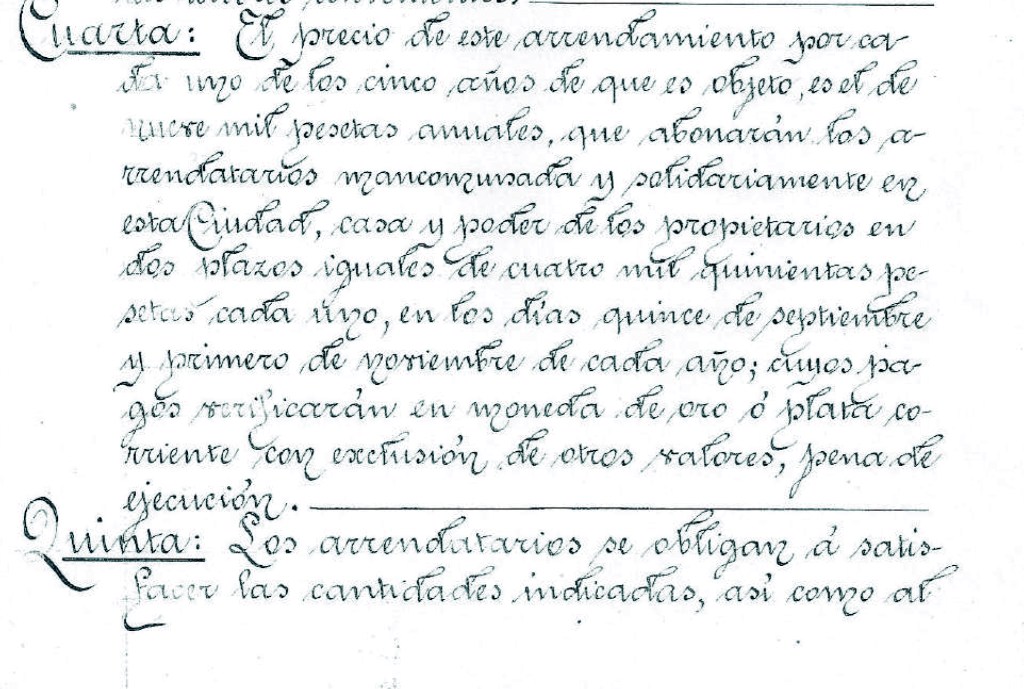 Cuarta: El precio de este arrendamiento por ca-
da uno de los cinco años de que es objeto, es el de
nueve mil pesetas anuales, que abonarán los a-
rrendatarios mancomunada y solidariamente en
esta Ciudad, casa y poder de los propietarios en
dos plazos iguales de cuatro mil quinientas pe-
setas cada uno, en los días quince de septiembre
y primero de noviembre de cada año; cuyos pa-
gos verificarán en moneda de oro ó plata co-
rriente con exclusión de otros valores, pena de
ejecución.
Quinta: Los arrendatarios se obligan á satis-
facer las cantidades indicadas, asi como al